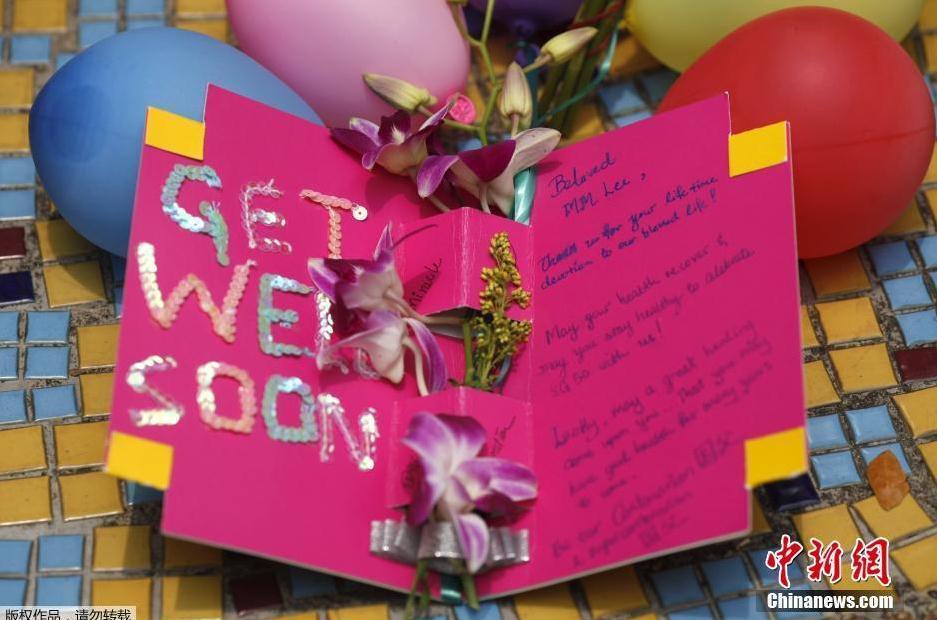 GET
WELL
SOON
Beloved
MM Lee,
for your life-time
devotion to our blessed life!
May your health recover &
may you stay healthy to celebrate
SG50 with us!
Lastly, may a great healing
come upon you. That you may
have good health for many years
to come.
Be our Centenarian
miracle
中新网
Chinanews.com
标准版权作品，请勿转载